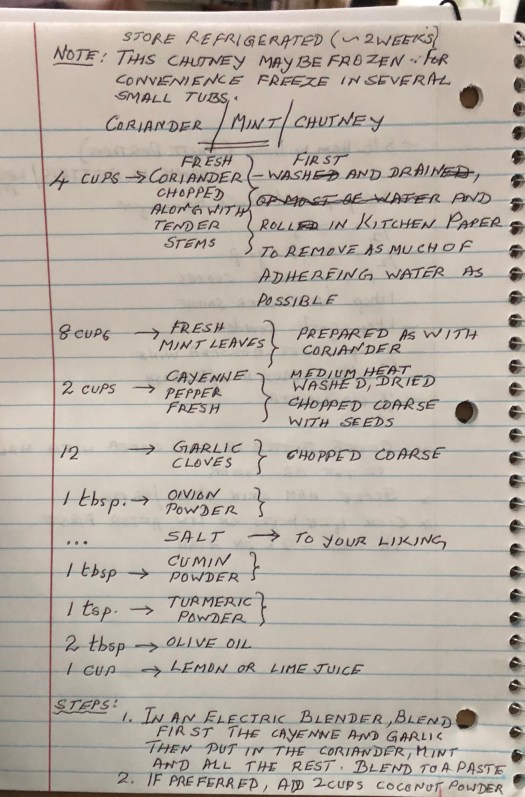 STORE REFRIGERATED (~2WEEKS)
NOTE: THIS CHUTNEY MAY BE FROZEN. FOR
CONVENIENCE FREEZE IN SEVERAL
SMALL TUBS.
CORIANDER / MINT / CHUTNEY
4 CUPS → FRESH
CORIANDER
CHOPPED
ALONG WITH
TENDER
STEMS
FIRST
WASHED AND DRAINED,
OF MOST OF WATER AND
ROLLED IN KITCHEN PAPER
TO REMOVE AS MUCH OF
ADHEREING WATER AS
POSSIBLE
8 CUPS → FRESH
MINT LEAVES
PREPARED AS WITH
CORIANDER
2 CUPS → CAYENNE
PEPPER
FRESH
MEDIUM HEAT
WASHED, DRIED
CHOPPED COARSE
WITH SEEDS
12 → GARLIC
CLOVES
CHOPPED COARSE
1 tbsp. → ONION
POWDER
... SALT → TO YOUR LIKING
1 tbsp → CUMIN
POWDER
1 tsp. → TURMERIC
POWDER
2 tbsp → OLIVE OIL
1 CUP → LEMON OR LIME JUICE
STEPS:
1. IN AN ELECTRIC BLENDER, BLEND
FIRST THE CAYENNE AND GARLIC
THEN PUT IN THE CORIANDER, MINT
AND ALL THE REST. BLEND TO A PASTE
2. IF PREFERRED, ADD 2 CUPS COCONUT POWDER